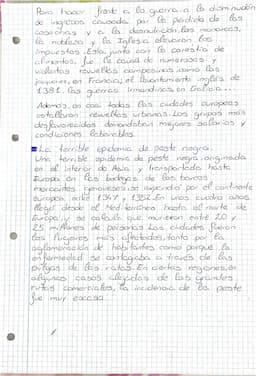 Para hacer frente a la guerra, a la disminución
de ingresos causada por la pérdida de las
cosechas y a la desnutrición, los monarcas,
la nobleza y la Iglesia elevaron los
impuestos. Esto, junto con la carestía de
alimentos, fue la causa de numerosas y
violentas revueltas campesinas como las
jaqueries, en Francia, el levantamiento inglés de
1381, las guerras irmandiñas en Galicia...
Además, en casi todas las ciudades europeas
estallaron revueltas urbanas. Los grupos más
desfavorecidos demandaban mejores salarios y
condiciones laborables.
La terrible epidemia de peste negra.
Una terrible epidemia de peste negra, originada
en el interior de Asia y transportada hasta
Europa en las bodegas de los barcos
mercantes genoveses, se expandió por el continente
europeo entre 1347 y 1352. En unos cuatro años
llegó desde el Mediterráneo hasta el norte de
Europa, y se calcula que murieron entre 20 y
25 millones de personas. Las ciudades fueron
los lugares más afectados, tanto por la
aglomeración de habitantes como porque la
enfermedad se contagiaba a través de las
pulgas de las ratas. En ciertas regiones, en
algunos casos alejadas de las grandes
rutas comerciales, la incidencia de la peste
fue muy escasa.